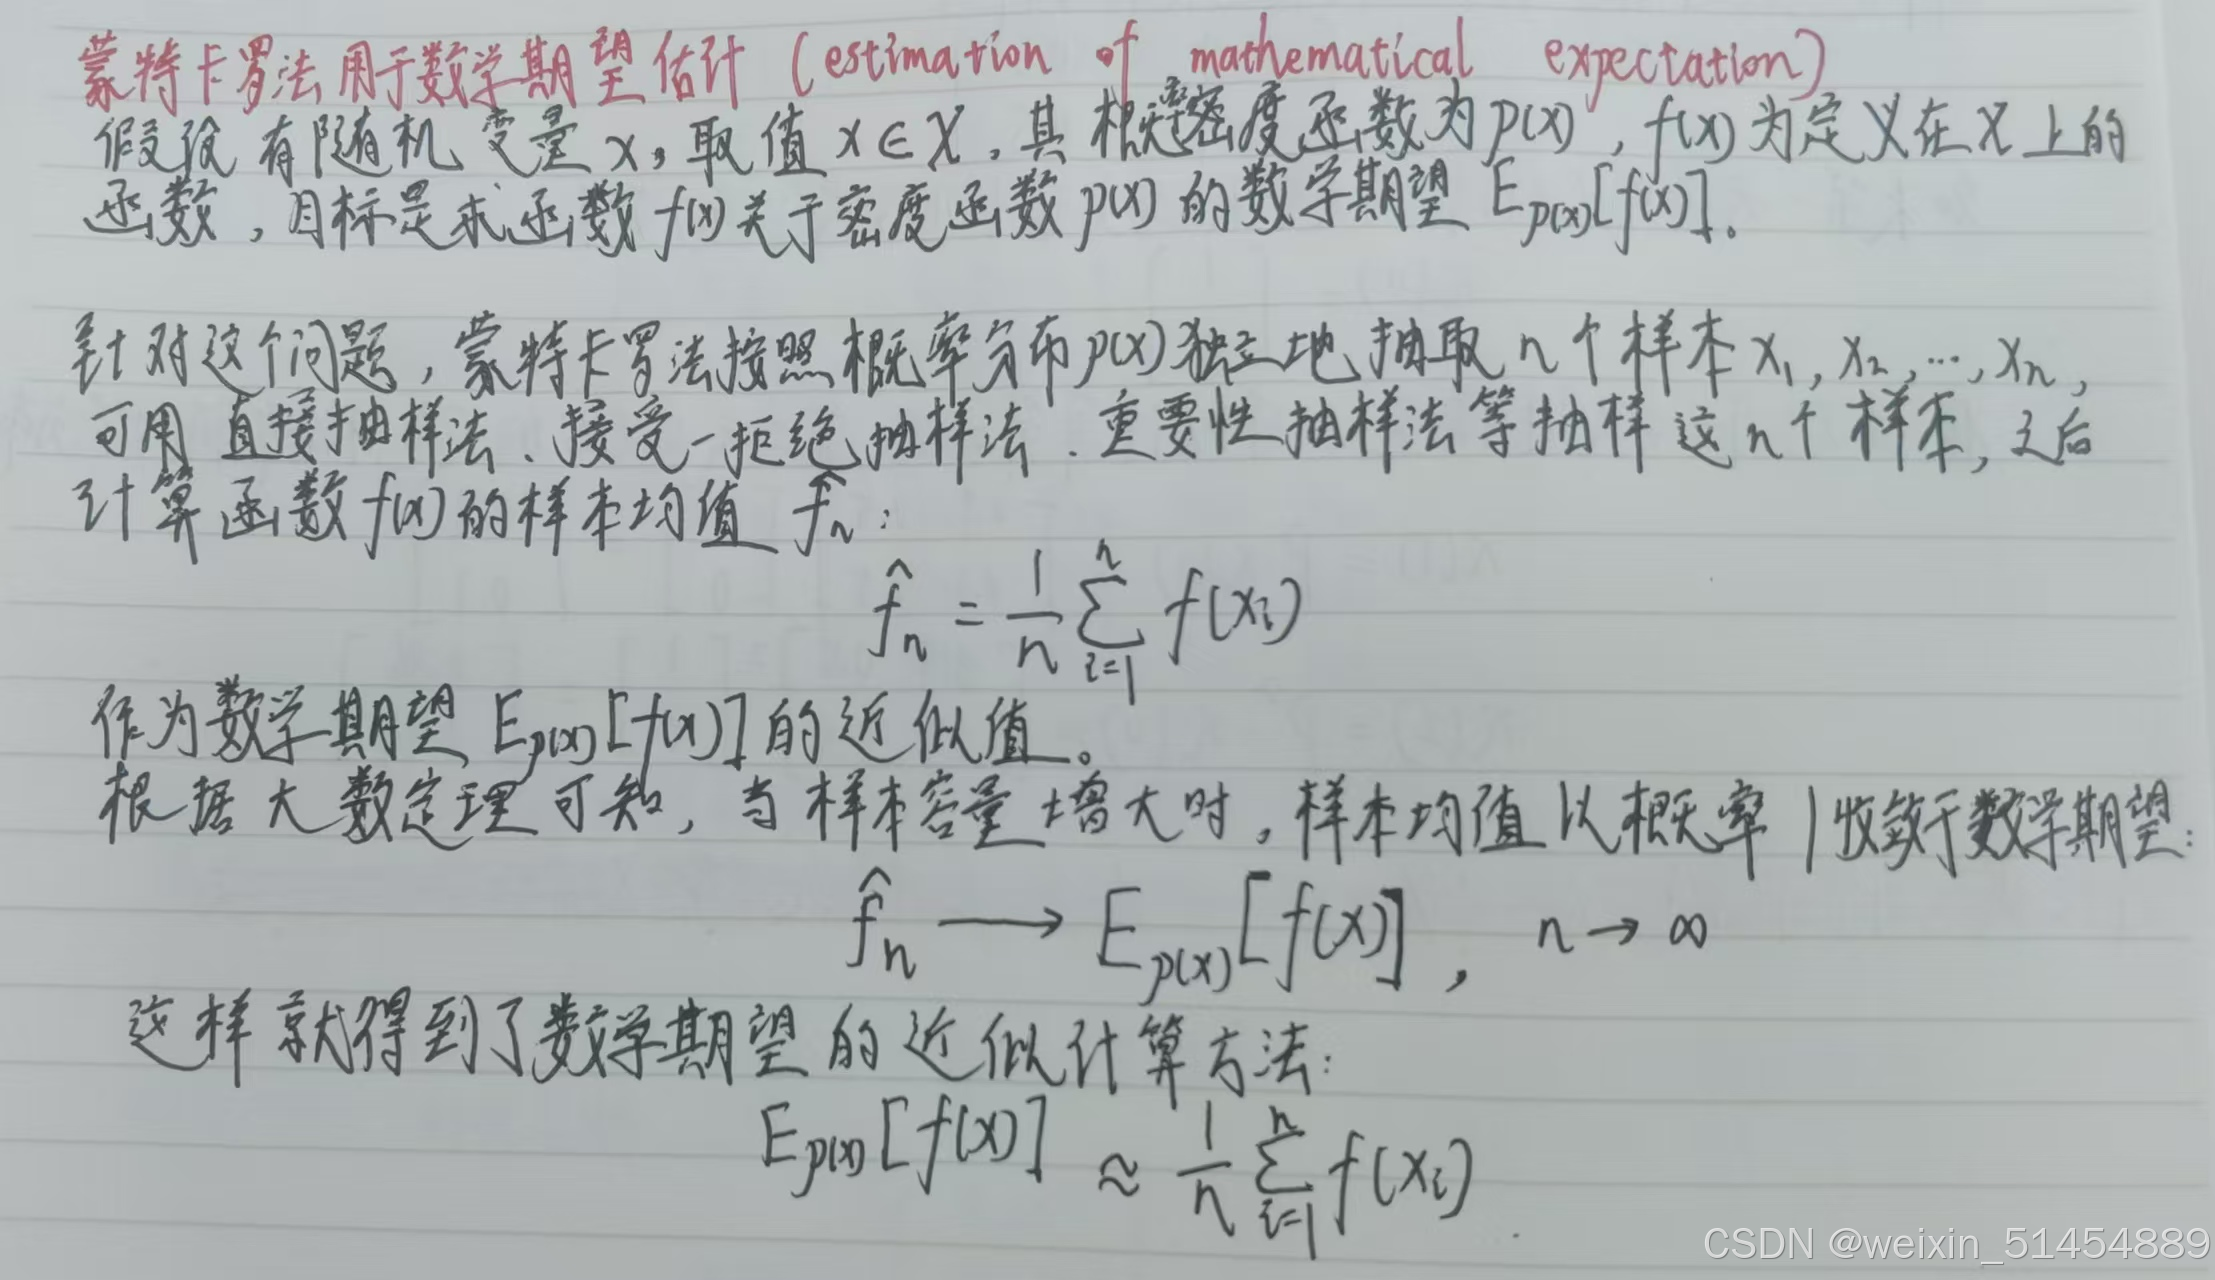 蒙特卡罗法用于数学期望估计 (estimation of mathematical expectation)
假设有随机变量x,取值x∈X,其概率密度函数为p(x),f(x)为定义在X上的
函数,目标是求函数f(x)关于密度函数p(x)的数学期望 E_{p(x)}[f(x)]。
针对这个问题,蒙特卡罗法按照概率分布p(x)独立地抽取n个样本x₁, x₂, …, xₙ,
可用直接抽样法、接受-拒绝抽样法、重要性抽样法等抽样这n个样本,之后
计算函数f(x)的样本均值 f̂ₙ:
f̂ₙ = \frac{1}{n} \sum_{i=1}^{n} f(x_i)
作为数学期望 E_{p(x)}[f(x)]的近似值。
根据大数定理可知,当样本容量增大时,样本均值以概率1收敛于数学期望:
f̂ₙ ⟶ E_{p(x)}[f(x)], n→∞
这样就得到了数学期望的近似计算方法:
E_{p(x)}[f(x)] ≈ \frac{1}{n} \sum_{i=1}^{n} f(x_i)
CSDN @weixin_51454889